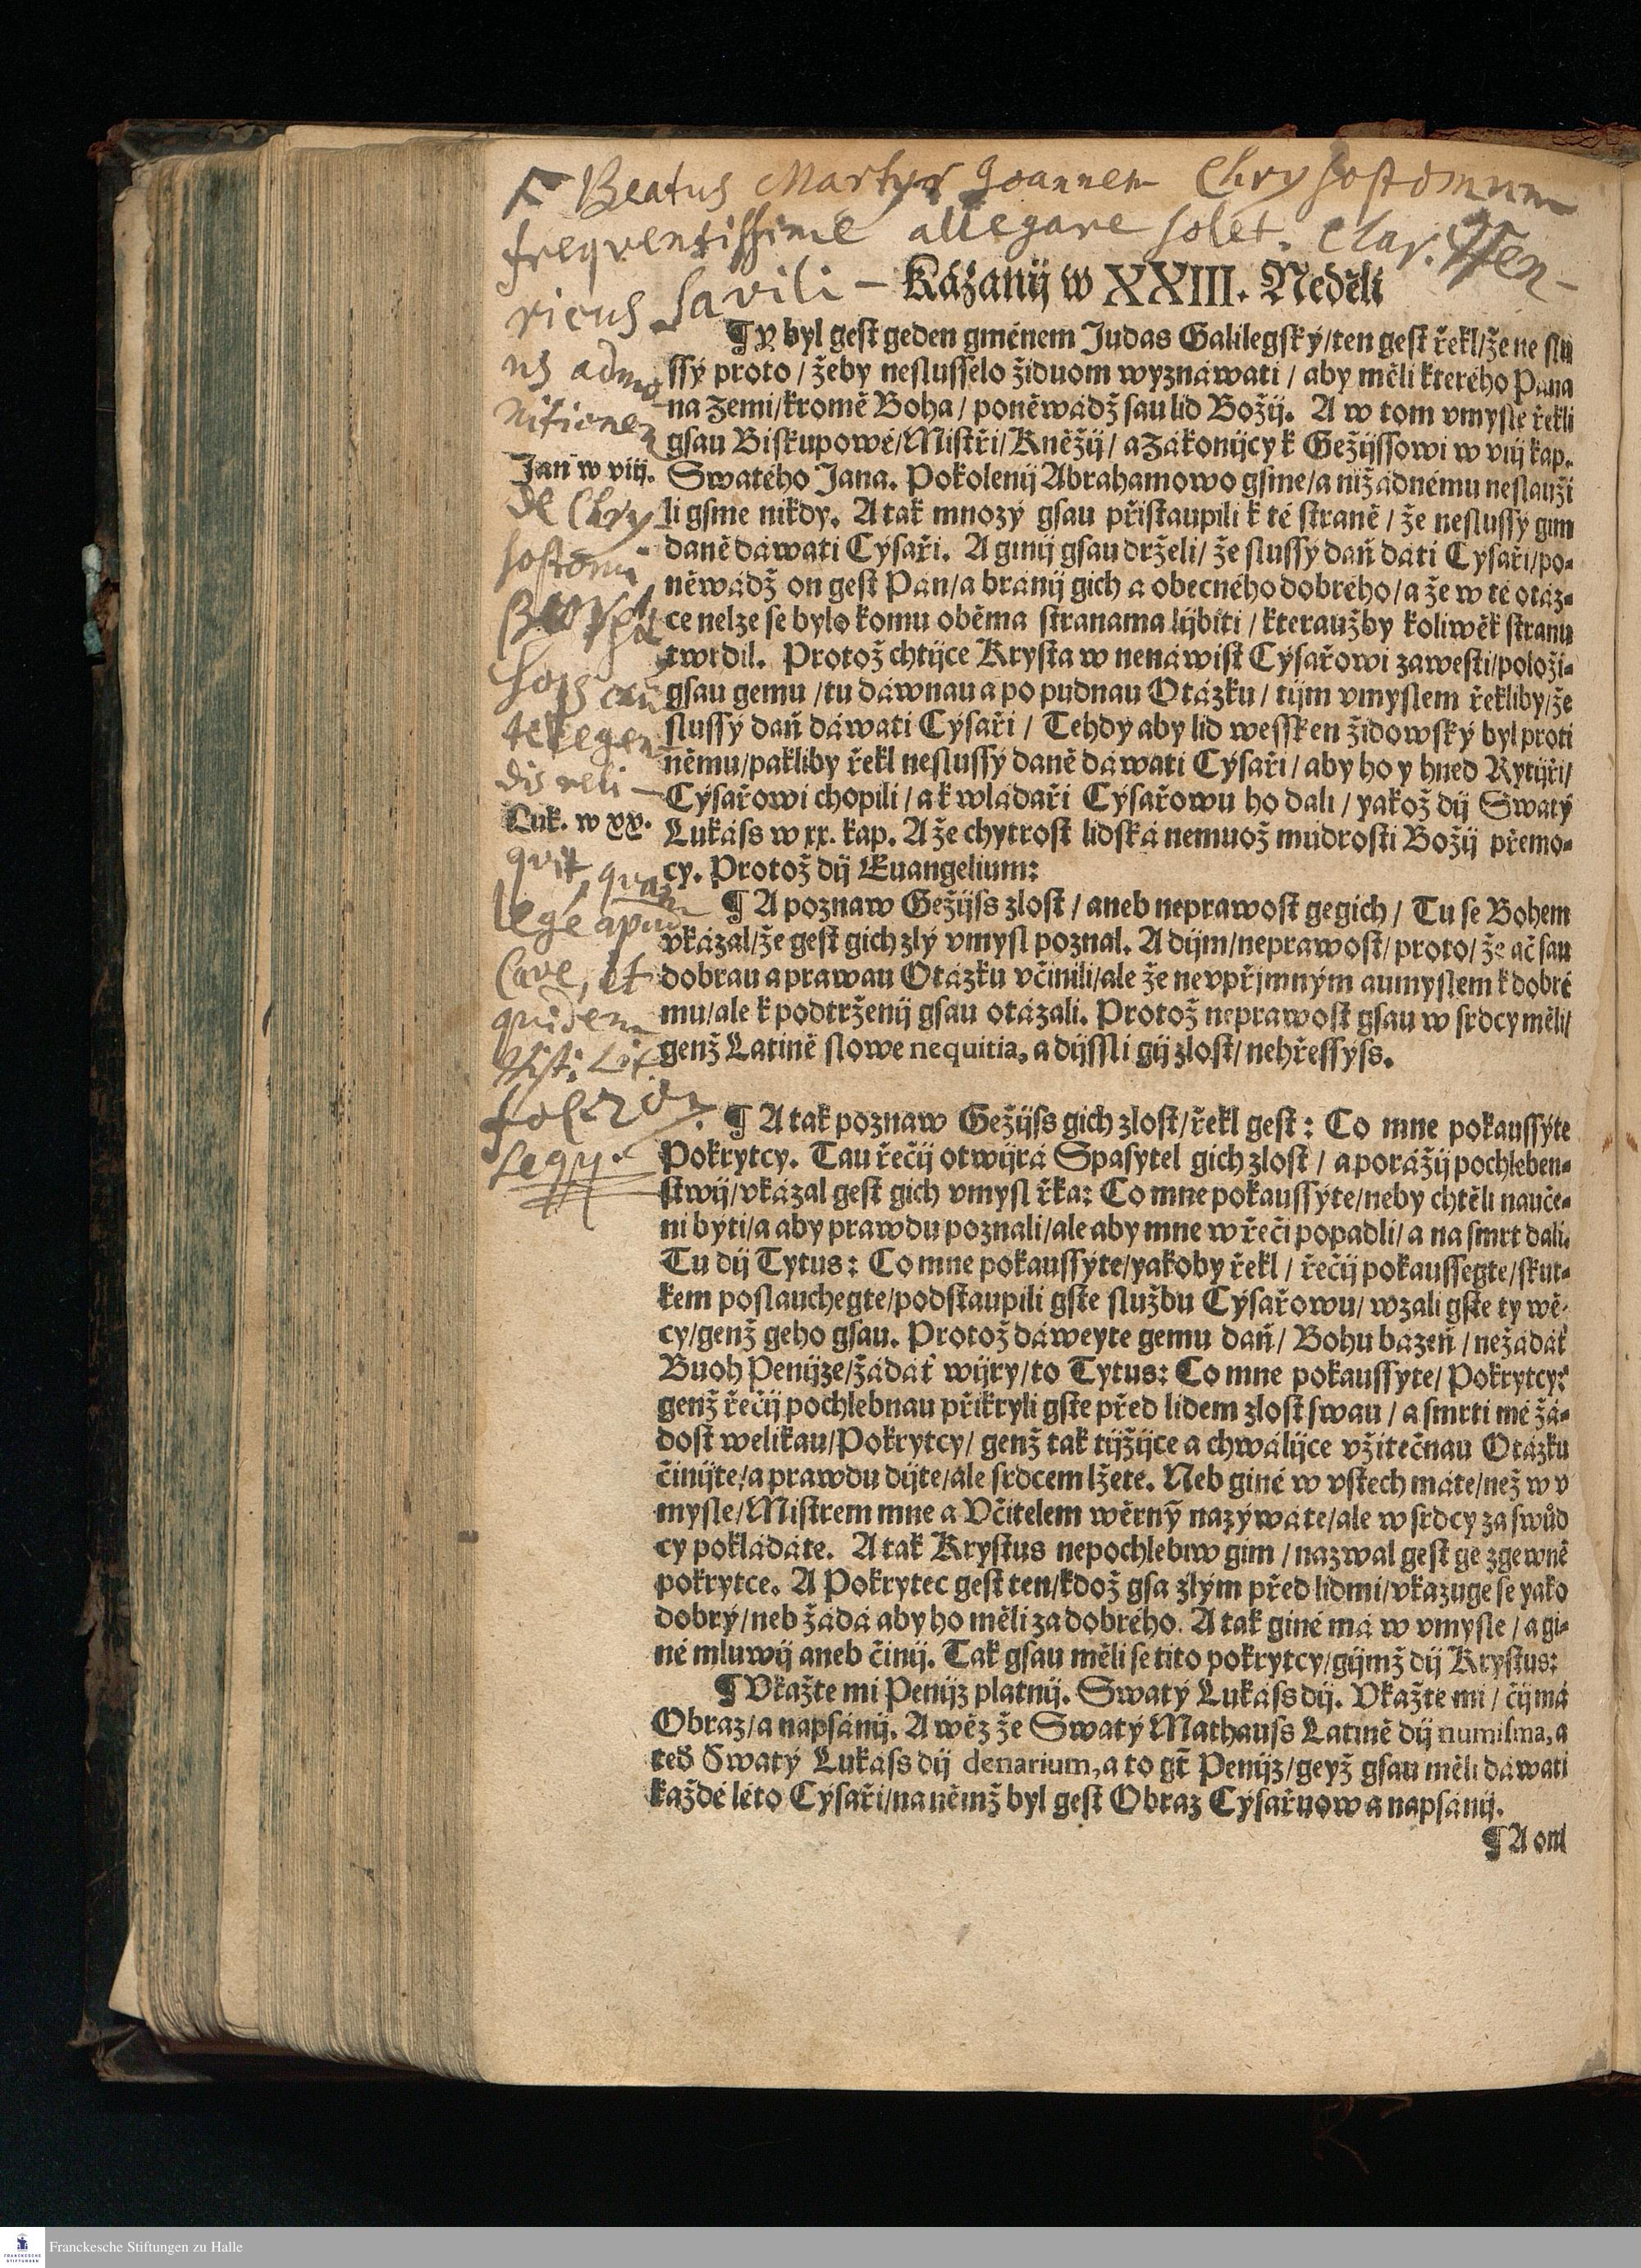 Beatus Martyr Joannem Chrysostomum
frequentissime allegare solet. Clar. Hen-
ricus Savili-
us admo
nitionem
de Chry
sostomi
scriptis cau
te legen-
dis reli-
quit, quam
lege apud
Cave, et
quidem
Hist: Lit
fol. 20
seqq.
Kázanij w XXIII. Neděli
¶ Y byl gest geden gménem Judas Galilegský/ten gest řekl/že ne slu
ssý proto / žeby neslusselo židuom wyznáwati / aby měli kterého Pána
na Zemi/kromě Boha / poněwádž sau lid Božij. A w tom vmysle řekli
gsau Biskupowé/Mistři/Kněžij/ a Zákonijcy k Gežijssowi w viij kap.
Jan w viij.
Swatého Jana. Pokolenij Abrahamowo gsme/a nižádnému neslauži
li gsme nikdy. A tak mnozý gsau přistaupili k té straně / že neslussý gim
daně dáwati Cýsaři. A ginij gsau drželi/ že slussý daň dáti Cýsaři/po-
něwádž on gest Pán/a bránij gich a obecného dobrého/a že w té otáz-
ce nelze se bylo komu oběma stranama lijbiti / kteraužby koliwěk stranu
twrdil. Protož chtijce Krysta w nenáwist Cýsařowi zawesti/položi-
gsau gemu /tu dáwnau a po pudnau Otázku / tijm vmyslem řekliby/že
slussý daň dáwati Cýsaři / Tehdy aby lid wessken židowský byl proti
němu/pakliby řekl neslussý daně dáwati Cýsaři / aby ho y hned Rytijři/
Cýsařowi chopili / a k wládaři Cýsařowu ho dali / yakož dij Swatý
Luk. w xx.
Lukáss w xx. kap. A že chytrost lidská nemuož múdrosti Božij přemo-
cy. Protož dij Euangelium:
¶ A poznaw Gežijss zlost / aneb neprawost gegich / Tu se Bohem
vkázal/že gest gich zlý vmysl poznal. A dijm/neprawost/ proto/ že ač sau
dobrau a prawau Otázku včinili/ale že nevpřjmným aumyslem k dobré
mu/ale k podtrženij gsau otázali. Protož neprawost gsau w srdcy měli/
genž Latině slowe nequitia, a dijssli gij zlost/ nehřessýss.
¶ A tak poznaw Gežijss gich zlost/řekl gest: Co mne pokaussýte
Pokrytcy. Tau řečij otwijrá Spasytel gich zlost / a porážij pochleben-
stwij/vkázal gest gich vmysl řka: Co mne pokaussýte/neby chtěli nauče-
ni býti/a aby prawdu poznali/ale aby mne w řeči popadli/ a na smrt dali.
Tu dij Tytus: Co mne pokaussýte/yakoby řekl / řečij pokaussegte/skut-
kem poslauchegte/podstaupili gste službu Cýsařowu/ wzali gste ty wě-
cy/genž geho gsau. Protož dáweyte gemu daň/ Bohu bázeň / nežádáť
Buoh Penijze/žádáť wijry/to Tytus: Co mne pokaussýte/ Pokrytcy:
genž řečij pochlebnau přikryli gste před lidem zlost swau / a smrti mé žá-
dost welikau/Pokrytcy/ genž tak tijžijce a chwálijce vžitečnau Otázku
činijte/a prawdu dijte/ale srdcem lžete. Neb giné w vstech máte/než w v
mysle/Mistrem mne a Včitelem wěrnỹ nazýwáte/ale w srdcy za swůd
cy pokládáte. A tak Krystus nepochlebiw gim / nazwal gest ge zgewně
pokrytce. A Pokrytec gest ten/kdož gsa zlým před lidmi/vkazuge se yako
dobrý/neb žádá aby ho měli za dobrého. A tak giné má w vmysle / a gi-
né mluwij aneb činij. Tak gsau měli se tito pokrytcy/gijmž dij Krystus:
¶ Vkažte mi Penijz platnij. Swatý Lukáss dij. Vkažte mi / čij má
Obraz/a napsánij. A wěz že Swatý Mathauss Latině dij numisma, a
teď Swatý Lukáss dij denarium, a to gt̃ Penijz/geyž gsau měli dáwati
každé léto Cýsaři/na němž byl gest Obraz Cýsařuow a napsánij.
¶ A oni
Franckesche Stiftungen zu Halle